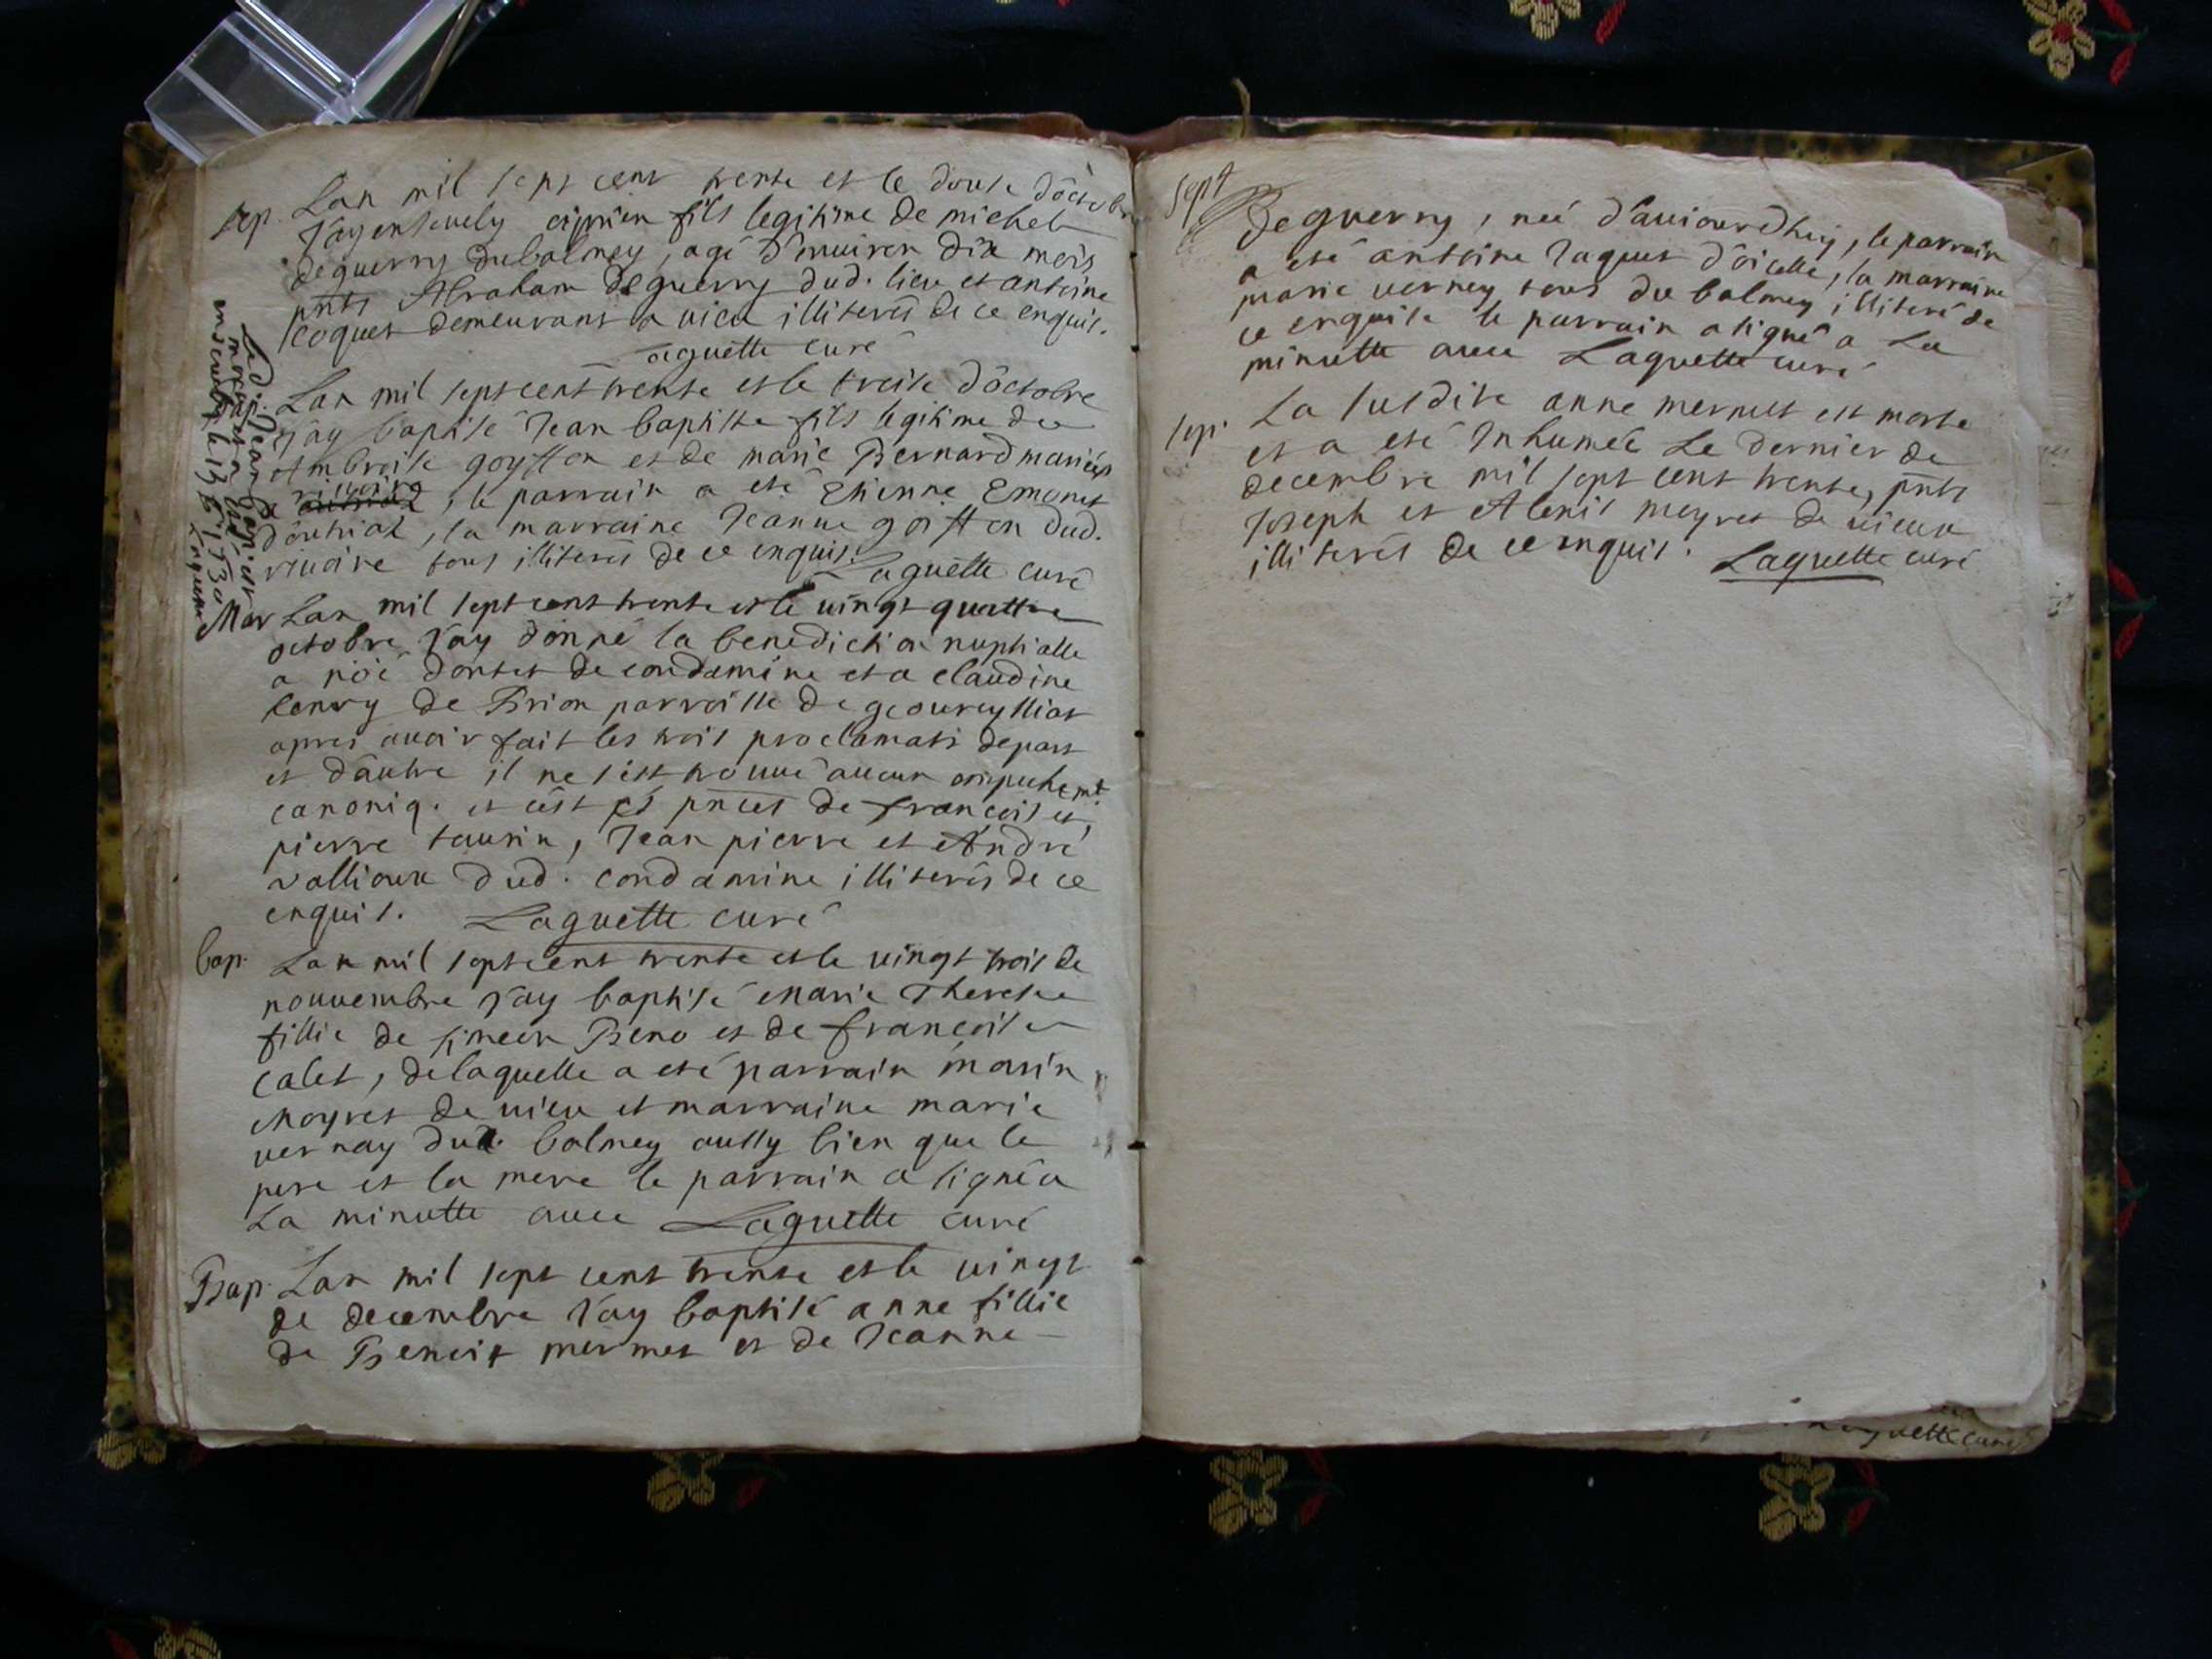 sep. Lan mil sept cent trente et le douse d'octobre
j'ay ensevely ciprien fils legitime de michel
deguerry du balmey, agé d'enuiron dix mois
pnts Abraham deguerry dud. lieu et antoine
coquet demeurant a uieu illiterés de ce enquis.
Laguette curé
bap. Lan mil sept cent trente et le treise d'octobre
j'ay baptisé Jean baptiste fils legitime de
Ambroise goyffon et de marie Bernard mariés
a riuoire, le parrain a eté Etienne Emonet
d'outriaz, la marraine Jeanne goiffon dud.
riuoire tous illiterés de ce enquis. Laguette curé
Led. Jean baptiste
mort et a été
enseuely le
1730
Laguette
Mar Lan mil sept cent trente et le uingt quattre
octobre j'ay donné la benediction nuptialle
a noé dortet de condamine et a claudine
lenvy de Brion parroisse de geoureyssiat
apres auoir fait les trois proclamats de part
et d'autre il ne s'est trouué aucun empechemt
canoniq. et c'est es pnces de francois et
pierre tausin, Jean pierre et André
vallioux dud. condamine illiterés de ce
enquis. Laguette curé
bap. Lan mil sept cent trente et le uingt trois de
nouuembre j'ay baptisé Marie Therese
fillie de simeon Beno et de francoise
calet, de laquelle a eté parrain marin
Moyret de uieu et marraine marie
vernay du balmey aussy bien que le
pere et la mere le parrain a signé a
La minutte auec Laguette curé
Bap. Lan mil sept cent trente et le uingt
de decembre j'ay baptisé anne fillie
de Benoit mermet et de Jeanne
sept
deguerry, neé d'auiourdhuy, le parrain
a eté antoine Jaquet d'oiselle, la marraine
marie verney tous du balmey illiteré de
ce enquise le parrain a signé a La
minutte auec Laguette curé
sep. La susdite anne mermet est morte
et a eté Inhumeé Le dernier de
decembre mil sept cent trente, pnts
Joseph et Alexis moyret de uieux
illiterés de ce enquis. Laguette curé
Laguette curé